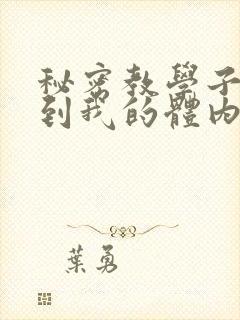 秘密教學子
到我的體內
葉勇